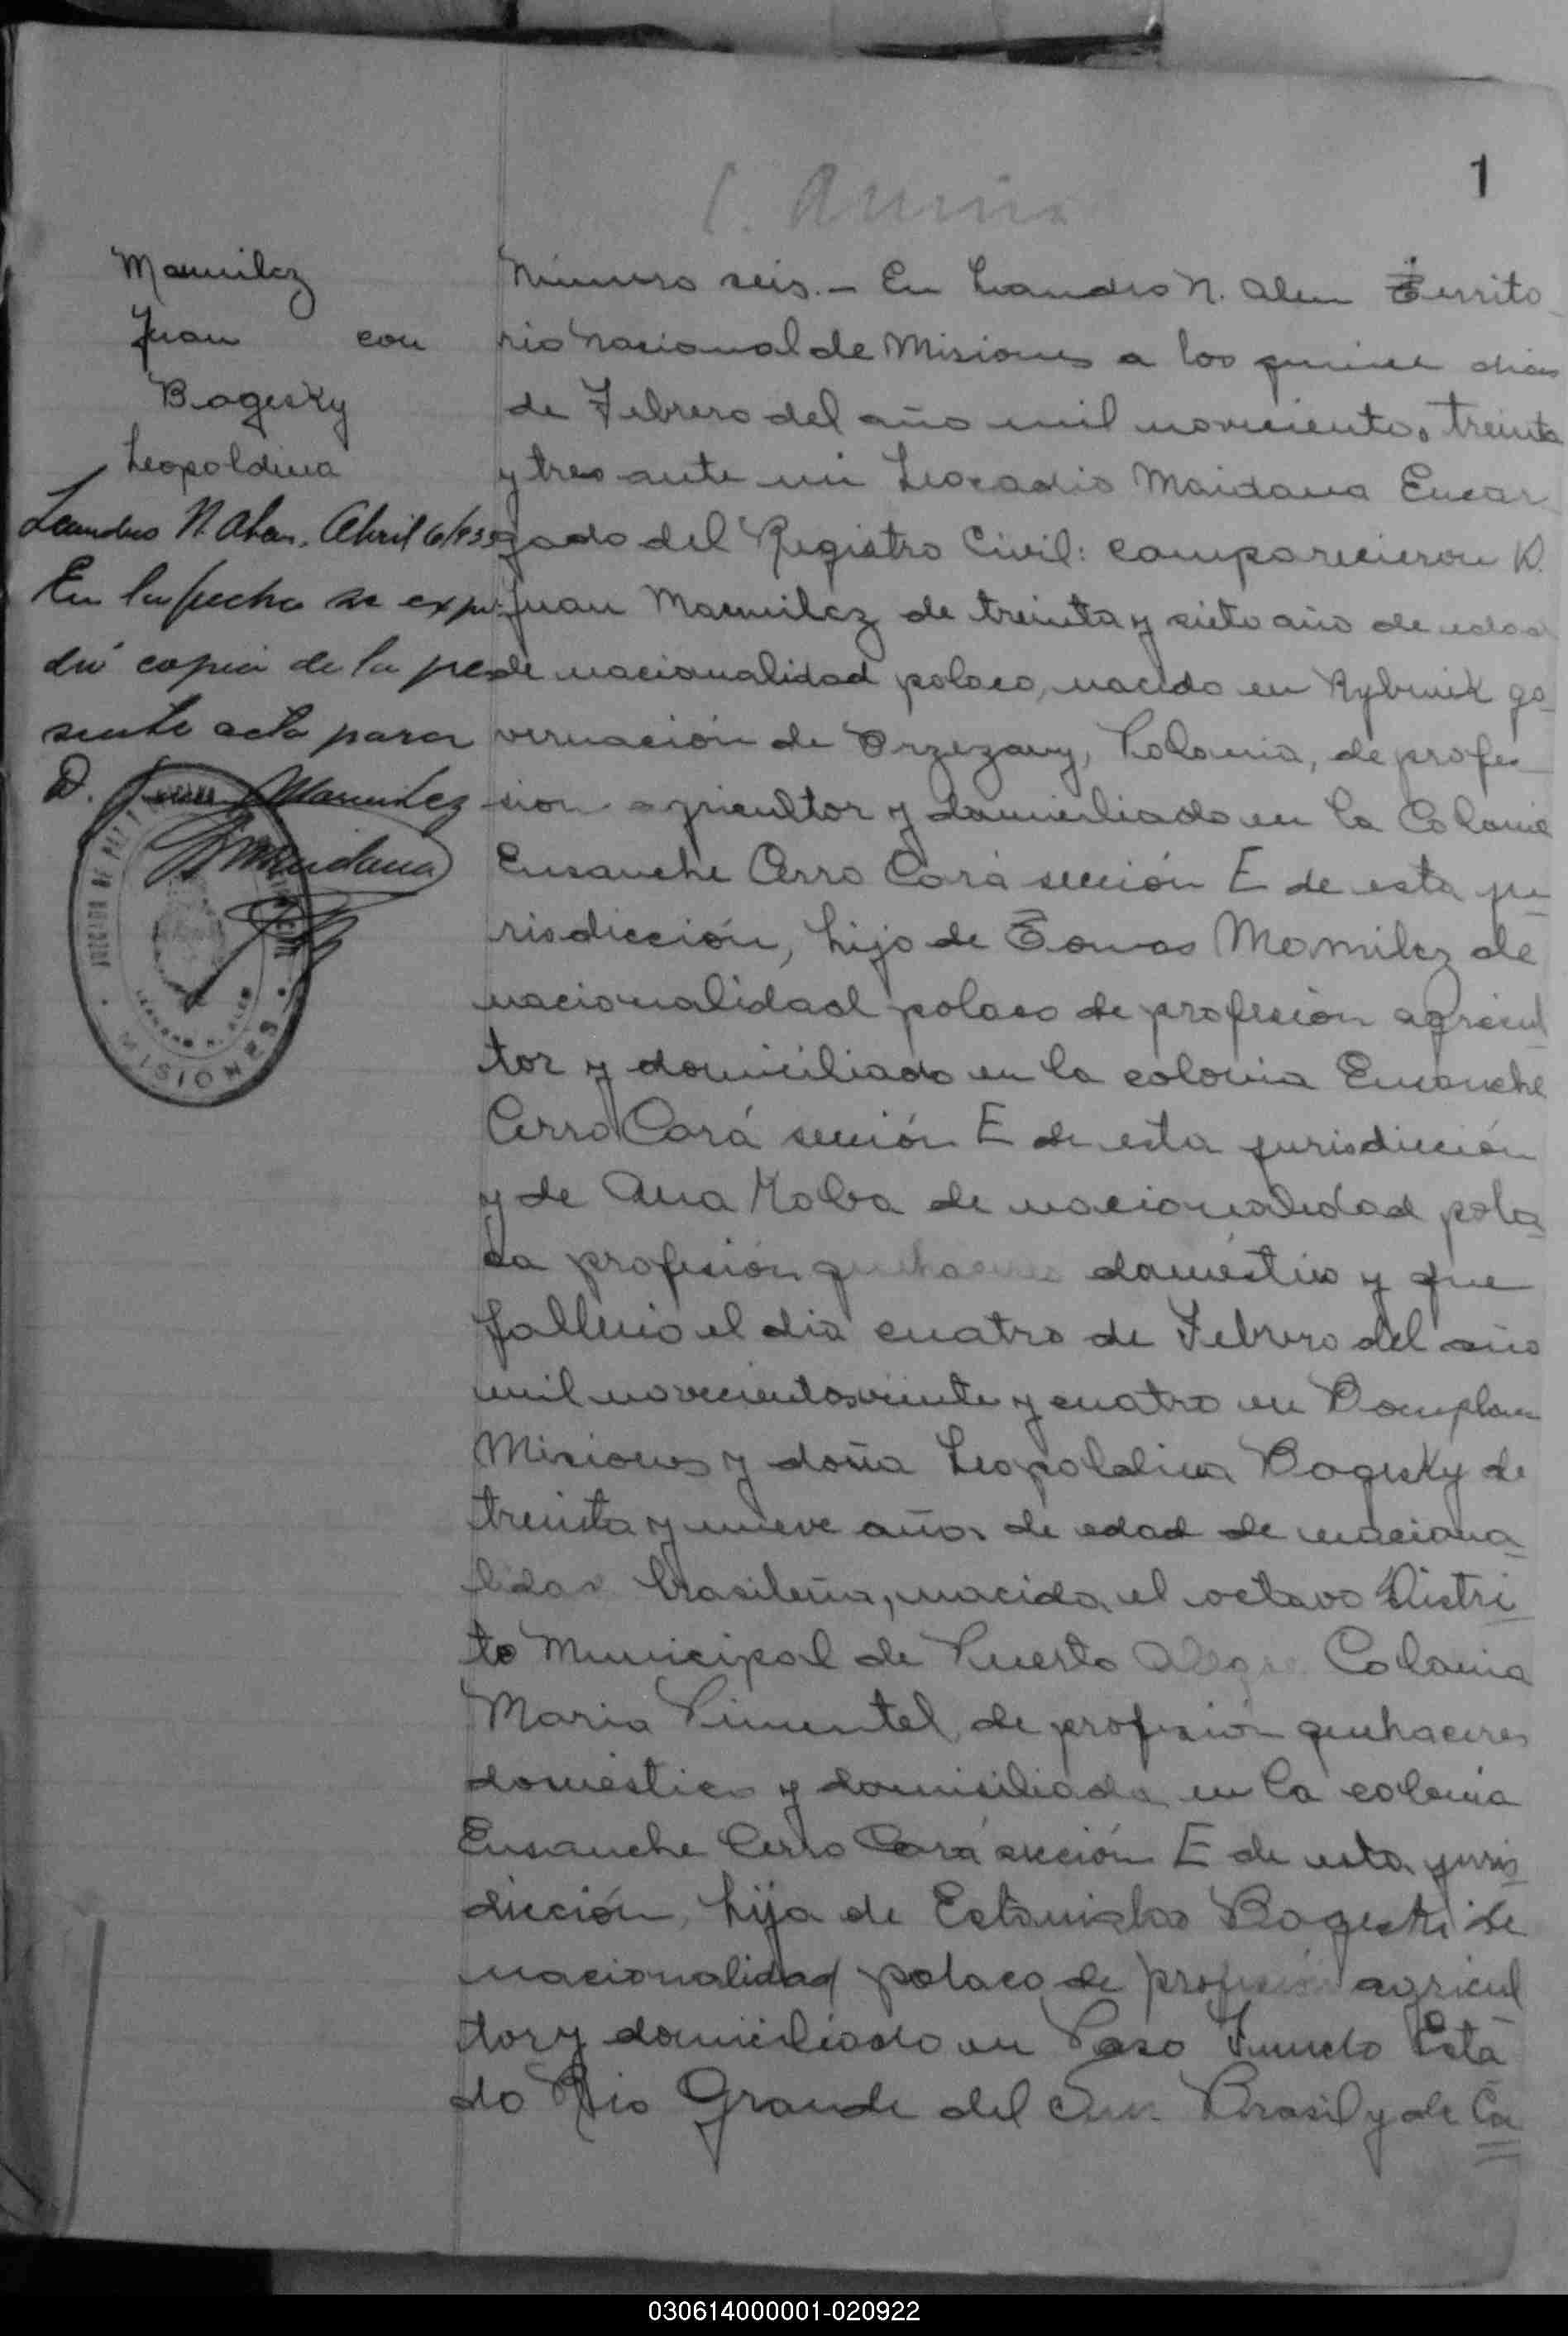 1
Mamilez
Juan con
Bogesky
Leopoldina
Leandro N. Alem. Abril 6/933
En la fecha se expi-
dió copia de la pre-
sente acta para
D. Juan Mamilez
Maidana
MISIONES
Número seis.- En Leandro N. Alem Territo-
rio Nacional de Misiones a los quince dias
de Febrero del año mil novecientos treinta
y tres ante mi Leocadio Maidana Encar-
gado del Registro Civil: comparecieron D.
Juan Mamilez de treinta y siete año de edad
de nacionalidad polaco, nacido en Rybnik go-
vernación de Brzezany, Polonia, de profe-
sion agricultor y domiciliado en la Colonia
Ensanche Cerro Corá sección E de esta ju-
risdicción, hijo de Tomas Momilez de
nacionalidad polaco de profesión agricul-
tor y domiciliado en la colonia Ensanche
Cerro Corá sección E de esta jurisdicción
y de Ana Koba de nacionalidad pola-
ca profesión quehaceres doméstico y que
fallecio el dia cuatro de Febrero del año
mil novecientos veinte y cuatro en Bomplan
Misiones y doña Leopoldina Bogesky de
treinta y nueve años de edad de naciona-
lidad brasileña, nacida el octavo Distri-
to Municipal de Puerto Alegre Colonia
Maria Pimentel, de profesión quehaceres
domestico y domisiliada en la colonia
Ensanche Cerro Corá sección E de esta juris-
dicción, hija de Estanislao Bogeski de
nacionalidad polaco de profesión agricul-
tor y domiciliado en Paso Fundo Esta-
do Rio Grande del Sur Brasil y de Ca
030614000001-020922